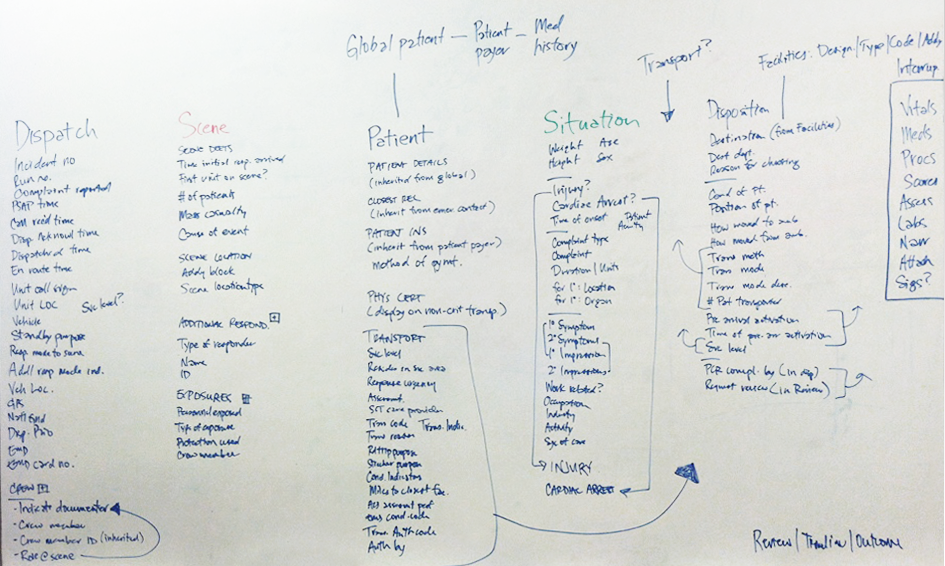 Global patient — Patient payer — Med history
Transport?
Facilities: Design/Type/Code/Addy
Interrup.
Dispatch
Incident no
Run no.
Complaint reported
PSAP time
Call recd time
Disp. Acknowd time
Dispatched time
En route time
Unit call sign
Unit LOC Svc level?
Vehicle
Standby purpose
Resp. mode to scene
Addl resp mode ind.
Veh Loc.
Disp. Prio
EMD
EMD card no.
CREW +
- Indicate documentor
- Crew member
- Crew member ID (inherited)
- Role @ scene
Scene
SCENE DEETS
Time initial resp. arrived
First unit on scene?
# of patients
Mass casualty
Cause of event
SCENE LOCATION
Addy block
Scene location type
ADDITIONAL RESPOND. +
Type of responder
Name
ID
EXPOSURES
Personnel exposed
Type of exposure
Protection used
Crew member
Patient
PATIENT DETAILS
(inherited from global)
CLOSEST REL
(inherit from emer contact)
PATIENT INS
(inherit from patient payer)
method of pymt.
PHYS CERT
(display on non-crit transp)
TRANSPORT
Svc level
Resides in svc area
Response urgency
Assessment
SCT care provider
Tran code Trans. Indic.
Tran reason
RdTrip purpose
Stretcher purpose
Cond. Indicator
Miles to closest fac.
EMS cond. code
Tran. Auth code
Auth by
Situation
Weight Age
Height Sex
Injury?
Cardiac Arrest?
Time of onset Patient Acuity
Complaint type
Complaint
Duration/Units
for 1°: Location
for 1°: Organ
1° Symptom
2° Symptoms
1° Impression
2° Impressions
Work related?
Occupation
Industry
Activity
INJURY
CARDIAC ARREST
Disposition
Destination (from Facilities)
Dest dept.
Reason for choosing
Cond of Pt.
Position of pt.
How moved to amb.
How moved from amb.
Trans meth
Tran mode
Tran mode desc.
# Pat transported
Pre arrival activation
Time of pre-arr activation
Svc level
PCR compl. by (in sig)
Request review (in Review)
Vitals
Meds
Procs
Scores
Assess
Labs
Narr
Attach
Sigs?
Review/Timeline/Outcome